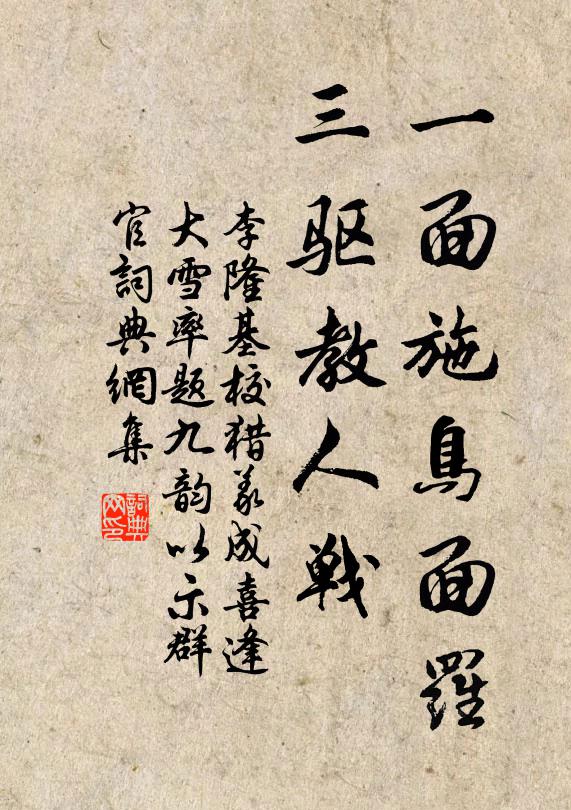 一面施鳥面羅
三驱教人戦
李隆基校猎義成喜逢
大雪率题九韵以示群
官詞典網集
詞典網印